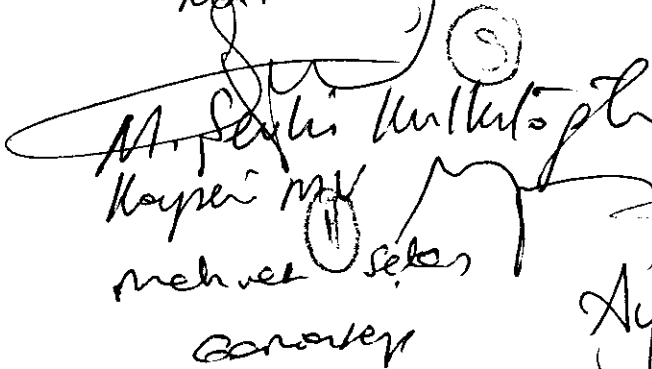 M. Şevki Kulkuloğlu
Kayseri MV
Mehmet Şeker
Gaziantep